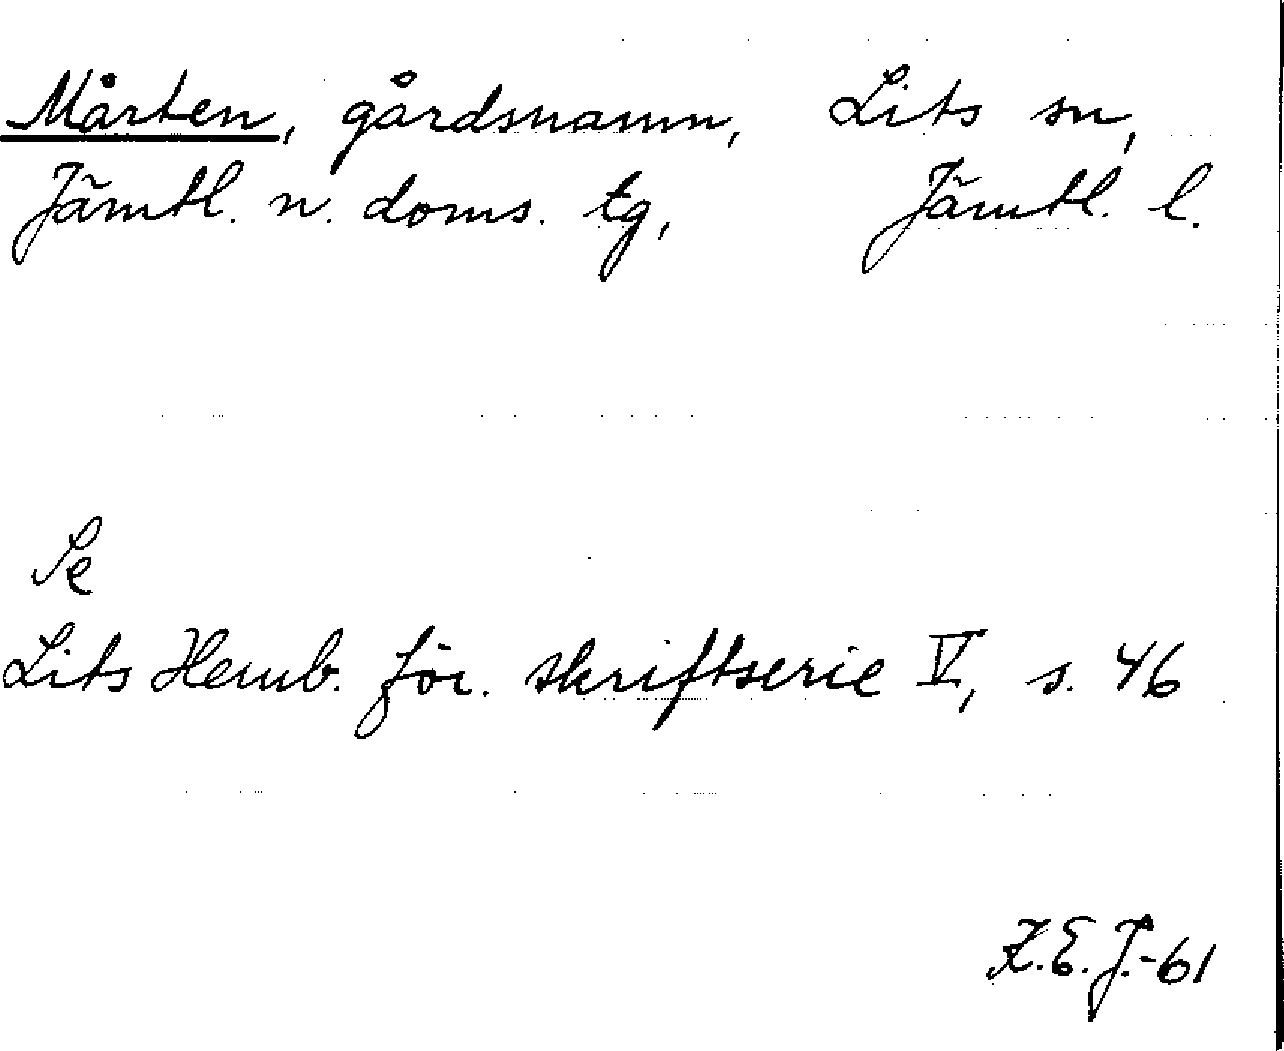 Mårten, gårdsnamn, Lits sn,
Jämtl. n. doms. tg, Jämtl. l.
Se
Lits Hemb. för. skriftserie V, s. 46
K.E.J.-61